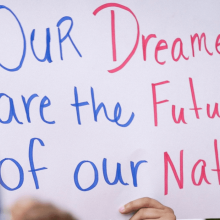 OuR Dreame
are the Futu
of our Nat